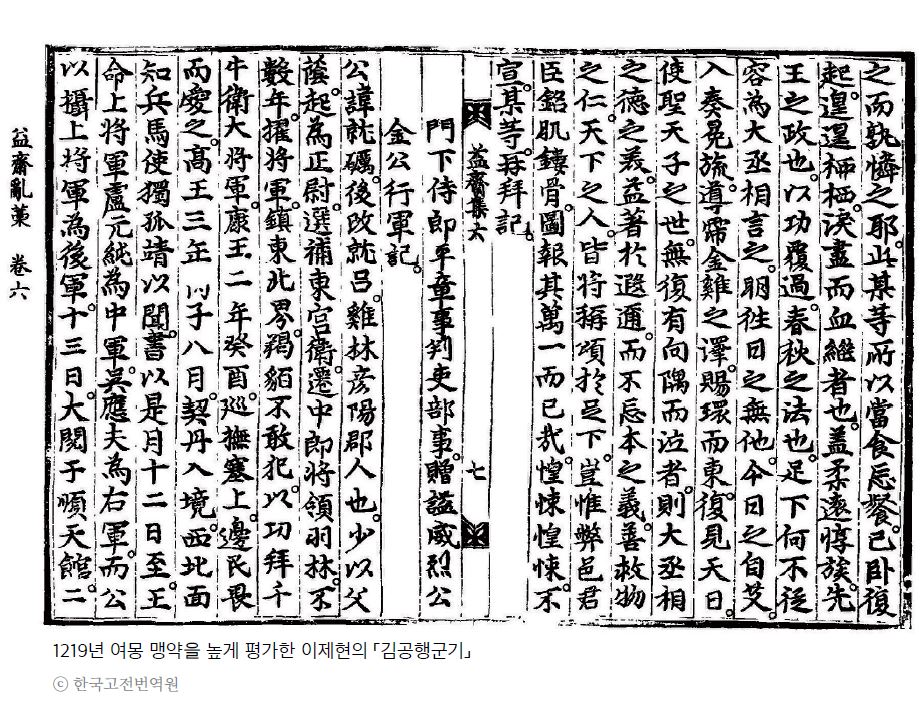 之而孰憐之耶。此某等所以當食忘餐。已臥復
起。遑遑栖栖。淚盡而血繼者也。盖柔遠惇族。先
王之政也。以功覆過。春秋之法也。足下何不從
容為大丞相言之。明往日之無他。今日之自艾。
入奏冕旒。導霈金雞之澤。賜環而東。復見天日。
使聖天子之世。無復有向隅而泣者。則大丞相
之德之義。益著於遐邇。而不忘本之義。善救物
之仁。天下之人。皆將稱頌於足下。豈惟弊邑君
臣銘肌鏤骨。圖報其萬一而已哉。惶悚惶悚。不
宣。某等再拜記。
益齋集六 七
門下侍郎平章事判吏部事。贈諡威烈公
金公行軍記。
公諱就礪。後改就呂。雞林彦陽郡人也。少以父
蔭。起為正尉。選補東宮衛。遷中郎將領羽林。不
數年。擢將軍。鎭東北界。羯貊不敢犯。以功拜千
牛衛大將軍。康王二年癸酉。巡撫塞上。邊民畏
而愛之。高王三年 子八月。契丹入境。西北面
知兵馬使獨孤靖以聞。書以是月十二日至。王
命上將軍盧元純為中軍。吳應夫為右軍。而公
以攝上將軍為後軍。十三日。大閱于順天館。二
益齋亂藁 卷六
1219년 여몽 맹약을 높게 평가한 이제현의 「김공행군기」
ⓒ 한국고전번역원